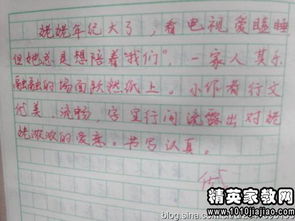 姥姥年纪大了，看电视爱瞌睡
但她总是想陪着“我们”，一家人其乐
融融的场面跃然纸上。小作者行文
优美、流畴，字里行间流露出对姥
姥浓浓的爱意。书写认真。
精英家教网
www.1010jiajiao.com